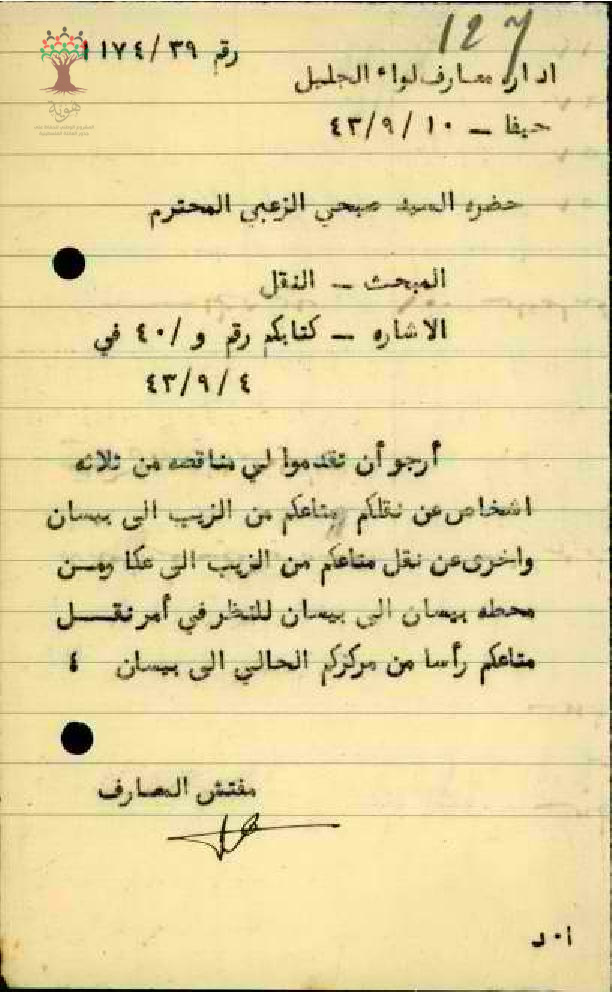 127
رقم ١١٧٤/٣٩
هوية
ادارة معارف لواء الجليل
حيفا — ١٠/٩/٤٣
حضره السيد صبحي الزعبي المحترم
المبحث — النقل
الاشاره — كتابكم رقم و /٤٠ في
٤٣/٩/٤
أرجو أن تقدموا لي مناقصه من ثلاثه
اشخاص عن نقلكم متاعكم من الزيب الى بيسان
واخرى عن نقل متاعكم من الزيب الى عكا ومن
محطه بيسان الى بيسان للنظر في أمر نقـــل
متاعكم رأسا من مركزكم الحالي الى بيسان ٤
مفتش المعارف
ا٠د